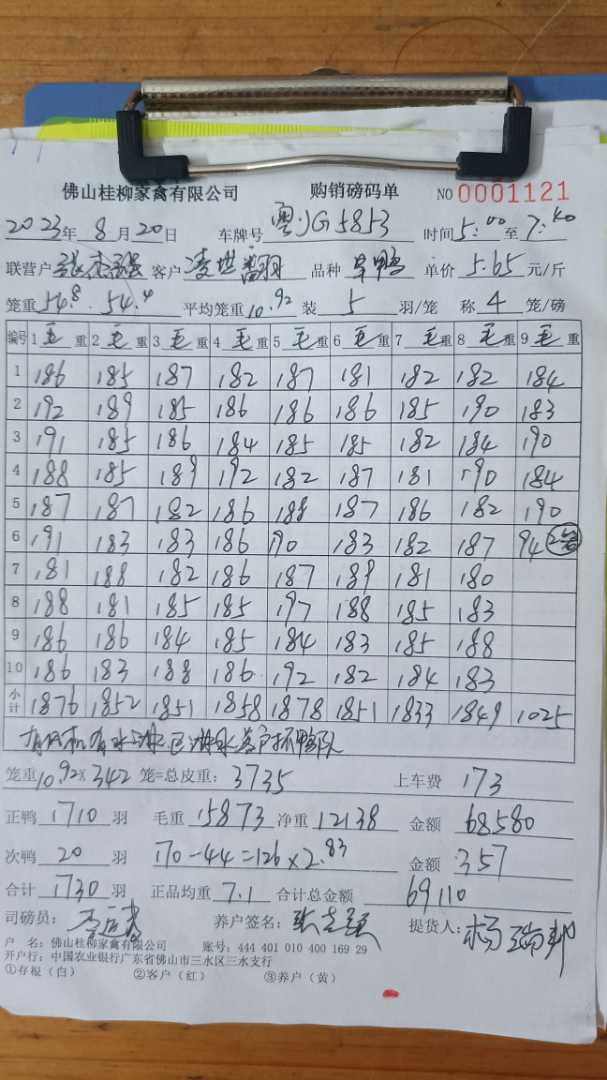 佛山桂柳家禽有限公司 购销磅码单 NO 0001121
2023年 8月20日 车牌号 粤JG5853 时间5:00至7:40
联营户 客户 品种 单价 5.65 元/斤
笼重54.8 . 54.4 平均笼重10.92 装 5 羽/笼 称 4 笼/磅
编号 1 毛 重 2 毛 重 3 毛 重 4 毛 重 5 毛 重 6 毛 重 7 毛 重 8 毛 重 9 毛 重
1 186 185 187 182 187 181 182 182 184
2 192 189 185 186 186 186 185 190 183
3 191 185 186 184 185 185 182 184 190
4 188 185 189 192 182 187 181 190 184
5 187 187 182 186 188 187 186 182 190
6 191 183 183 186 190 183 182 187 94
7 181 188 182 186 187 189 181 180
8 188 181 185 185 197 188 185 183
9 186 186 184 185 184 183 185 188
10 186 183 188 186 192 182 184 183
小计 1876 1852 1851 1858 1878 1851 1833 1849 1025
笼重10.92×342 笼=总皮重: 3735 上车费 173
正鸭 1710 羽 毛重 15873 净重 12138 金额 68580
次鸭 20 羽 170-44=126×2.83 金额 357
合计 1730 羽 正品均重 7.1 合计总金额 69110
司磅员: 养户签名: 提货人:
户 名: 佛山桂柳家禽有限公司 账号: 444 401 010 400 169 29
开户行: 中国农业银行广东省佛山市三水区三水支行
①存根(白) ②客户(红) ③养户(黄)